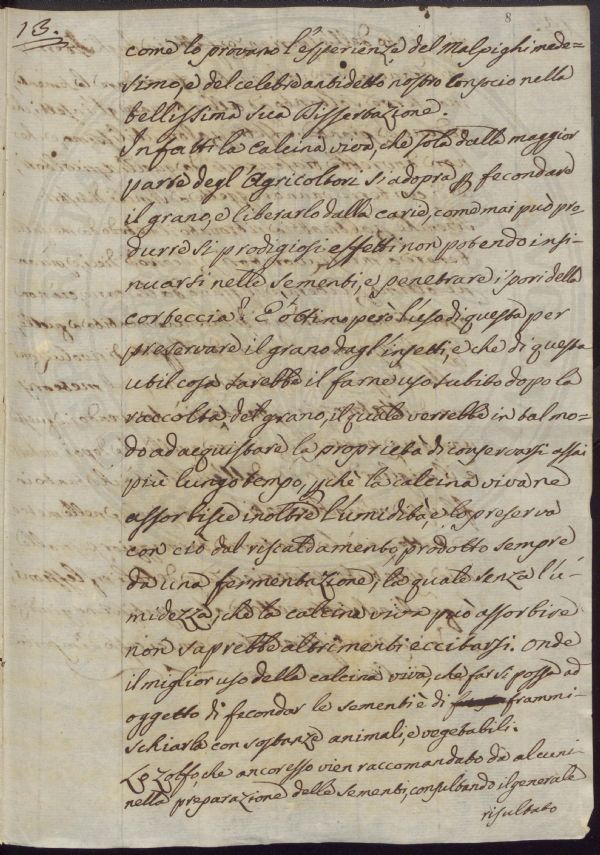 13.
8
come lo provano l'esperienze del Malpighi mede=
simo, e del celebre antidetto nostro Consocio nella
bellissima sua Dissertazione.
Infatti la Calcina viva, che sola dalla maggior
parte degl'Agricoltori si adopra p fecondare
il grano, e liberarlo dalla carie, come mai può pro-
durre sì prodigiosi effetti non potendo insi-
nuarsi nelle sementi, e penetrare i pori della
corteccia? È ottimo però l'uso di questa per
preservare il grano dagl'insetti, e che di questa
util cosa sarebbe il farne uso subito dopo la
raccolta del grano, il quale verrebbe in tal mo-
do ad acquistare la proprietà di conservarsi assai
più lungo tempo, pchè la calcina viva ne
assorbisce inoltre l'umidità, e lo preserva
con ciò dal riscaldamento, prodotto sempre
da una fermentazione, la quale senza l'u-
midezza, che la calcina viva può assorbire
non saprebbe altrimenti eccitarsi. Onde
il miglior uso della calcina viva, che farsi possa ad
oggetto di fecondar le sementi è di frammi-
schiarla con sostanze animali, e vegetabili.
Lo Zolfo, che ancor esso vien raccomandato da alcuni
nella preparazione delle sementi, consultando il generale
risultato